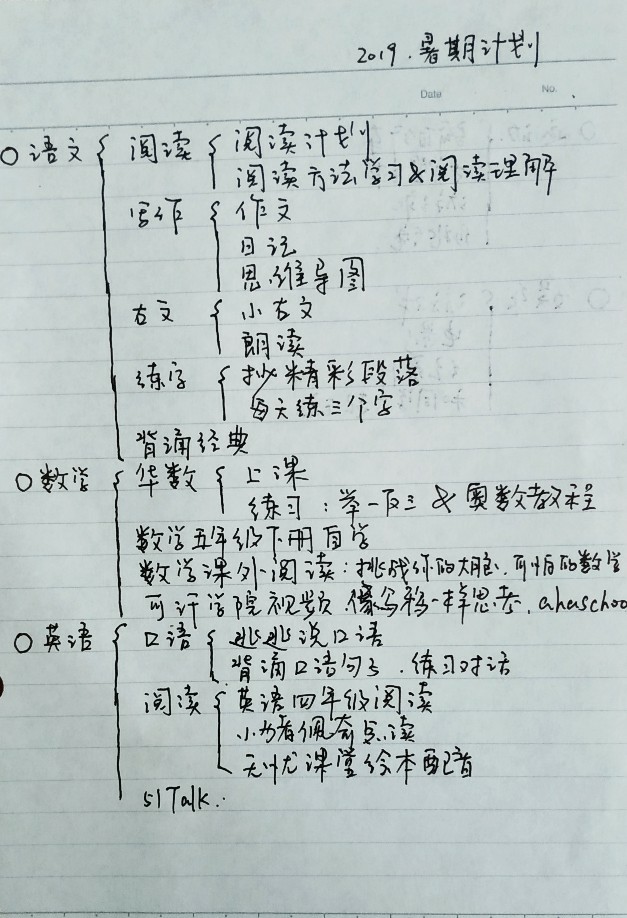 2019.暑期计划
Date No.
○语文 { 阅读 { 阅读计划
阅读方法学习&阅读理解
写作 { 作文
日记
思维导图
古文 { 小古文
朗读
练字 { 抄精彩段落
每天练三个字
背诵经典
○数学 { 华数 { 上课
练习:举一反三 & 奥数教程
数学五年级下册自学
数学课外阅读:挑战你的大脑、可怕的数学
可汗学院视频 像乌鸦一样思考、ahaschoo
○英语 { 口语 { 逃逃说口语
背诵口语句子、练习对话
阅读 { 英语四年级阅读
小猪佩奇点读
无忧课堂绘本配音
51Talk.